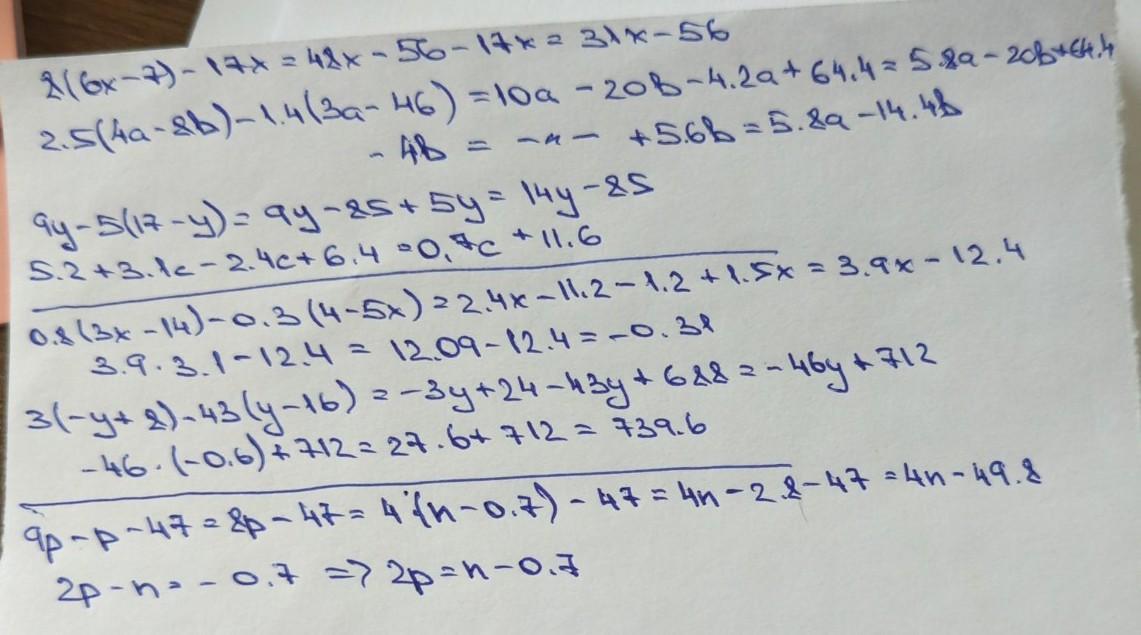 8(6x-7)-17x = 48x-56-17x = 31x-56
2.5(4a-8b)-1.4(3a-46) = 10a-20b-4.2a+64.4 = 5.8a-20b+64.4
-4b = -"- +5.6b = 5.8a-14.4b
9y-5(17-y) = 9y-85+5y = 14y-85
5.2+3.1c-2.4c+6.4 = 0.7c+11.6
0.8(3x-14)-0.3(4-5x) = 2.4x-11.2-1.2+1.5x = 3.9x-12.4
3.9·3.1-12.4 = 12.09-12.4 = -0.31
3(-y+8)-43(y-16) = -3y+24-43y+688 = -46y+712
-46·(-0.6)+712 = 27.6+712 = 739.6
9p-p-47 = 8p-47 = 4·(n-0.7)-47 = 4n-2.8-47 = 4n-49.8
2p-n = -0.7 => 2p = n-0.7